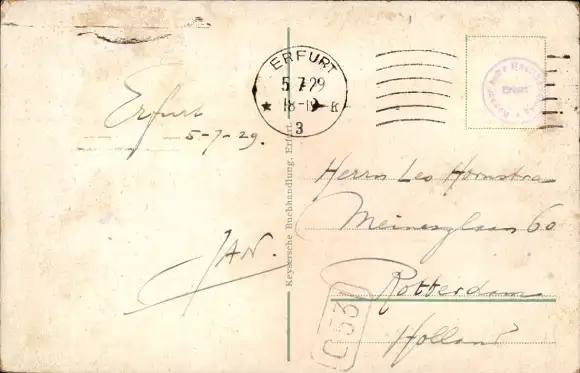 Erfurt
5-7-29.
JAN.
ERFURT
5.7.29
18-19 K
3
Keysersche Buchhandlung, Erfurt.
Erfurt
Herrn Leo Hornstra
60
Rotterdam
Holland